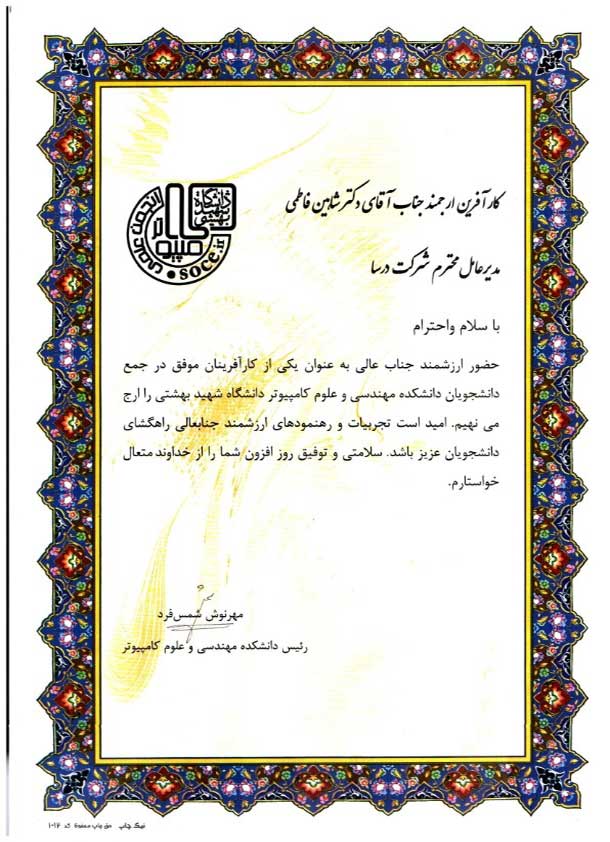 دانشگاه
شهید
بهشتی
کامپیوتر
انجمن علمی
soce.ir
کارآفرین ارجمند جناب آقای دکتر شاهین فاطمی
مدیرعامل محترم شرکت درسا
با سلام واحترام
حضور ارزشمند جناب عالی به عنوان یکی از کارآفرینان موفق در جمع
دانشجویان دانشکده مهندسی و علوم کامپیوتر دانشگاه شهید بهشتی را ارج
می نهیم. امید است تجربیات و رهنمودهای ارزشمند جنابعالی راهگشای
دانشجویان عزیز باشد. سلامتی و توفیق روز افزون شما را از خداوند متعال
خواستارم.
مهرنوش شمس‌فرد
رئیس دانشکده مهندسی و علوم کامپیوتر
نیک چاپ حق چاپ محفوظ کد ۱۰۱۲